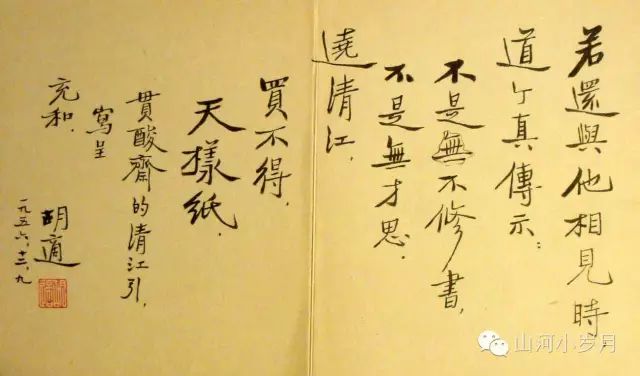 若還與他相見時,
道个真傳示:
不是無不修書,
不是無才思,
遶清江,
買不得,
天樣紙.
貫酸齋的清江引,
寫呈
充和.
胡適
一九五六,十二,九
山河小岁月